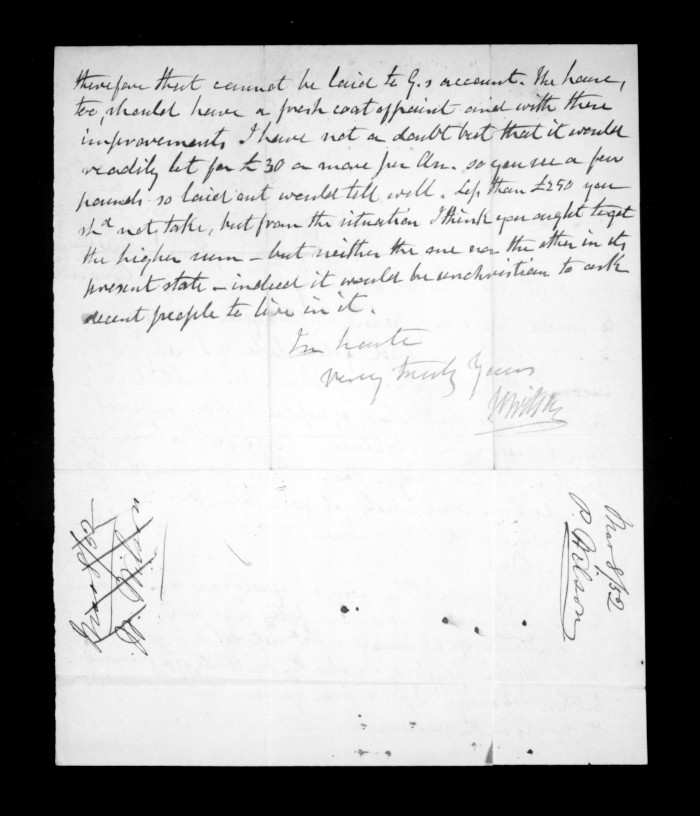 therefore that cannot be laid to G.s account. The house,
too, should have a fresh coat of paint and with these
improvements I have not a doubt but that it would
readily let for £30 or more per An. so you see a few
pounds so laid out would tell well. Less than £250 you
shd not take, but from the situation I think you ought to get
the higher sum – but neither the one nor the other in its
present state – indeed it would be unchristian to ask
decent people to live in it.
In haste
very truly Yours
P Wilson
Mar 8/52
P. Wilson